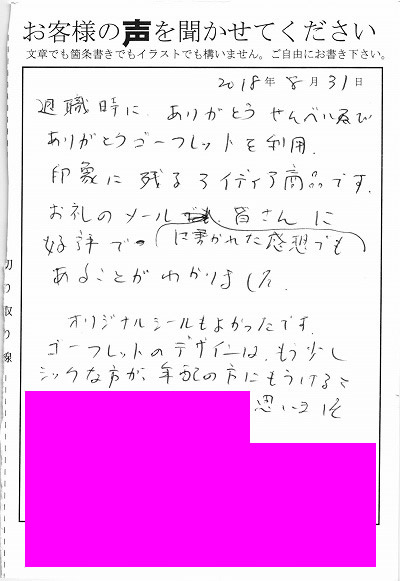 お客様の声を聞かせてください
文章でも箇条書きでもイラストでも構いません。ご自由にお書き下さい。
2018年8月31日
退職時に、ありがとうせんべい及び
ありがとうゴーフレットを利用。
印象に残るアイディア商品です。
お礼のメール 皆さんに
好評で に書かれた感想でも
あることがわかりました。
オリジナルシールもよかったです。
ゴーフレットのデザインは、もう少し
シックな方が、年配の方にもうける
思います
切り取り線